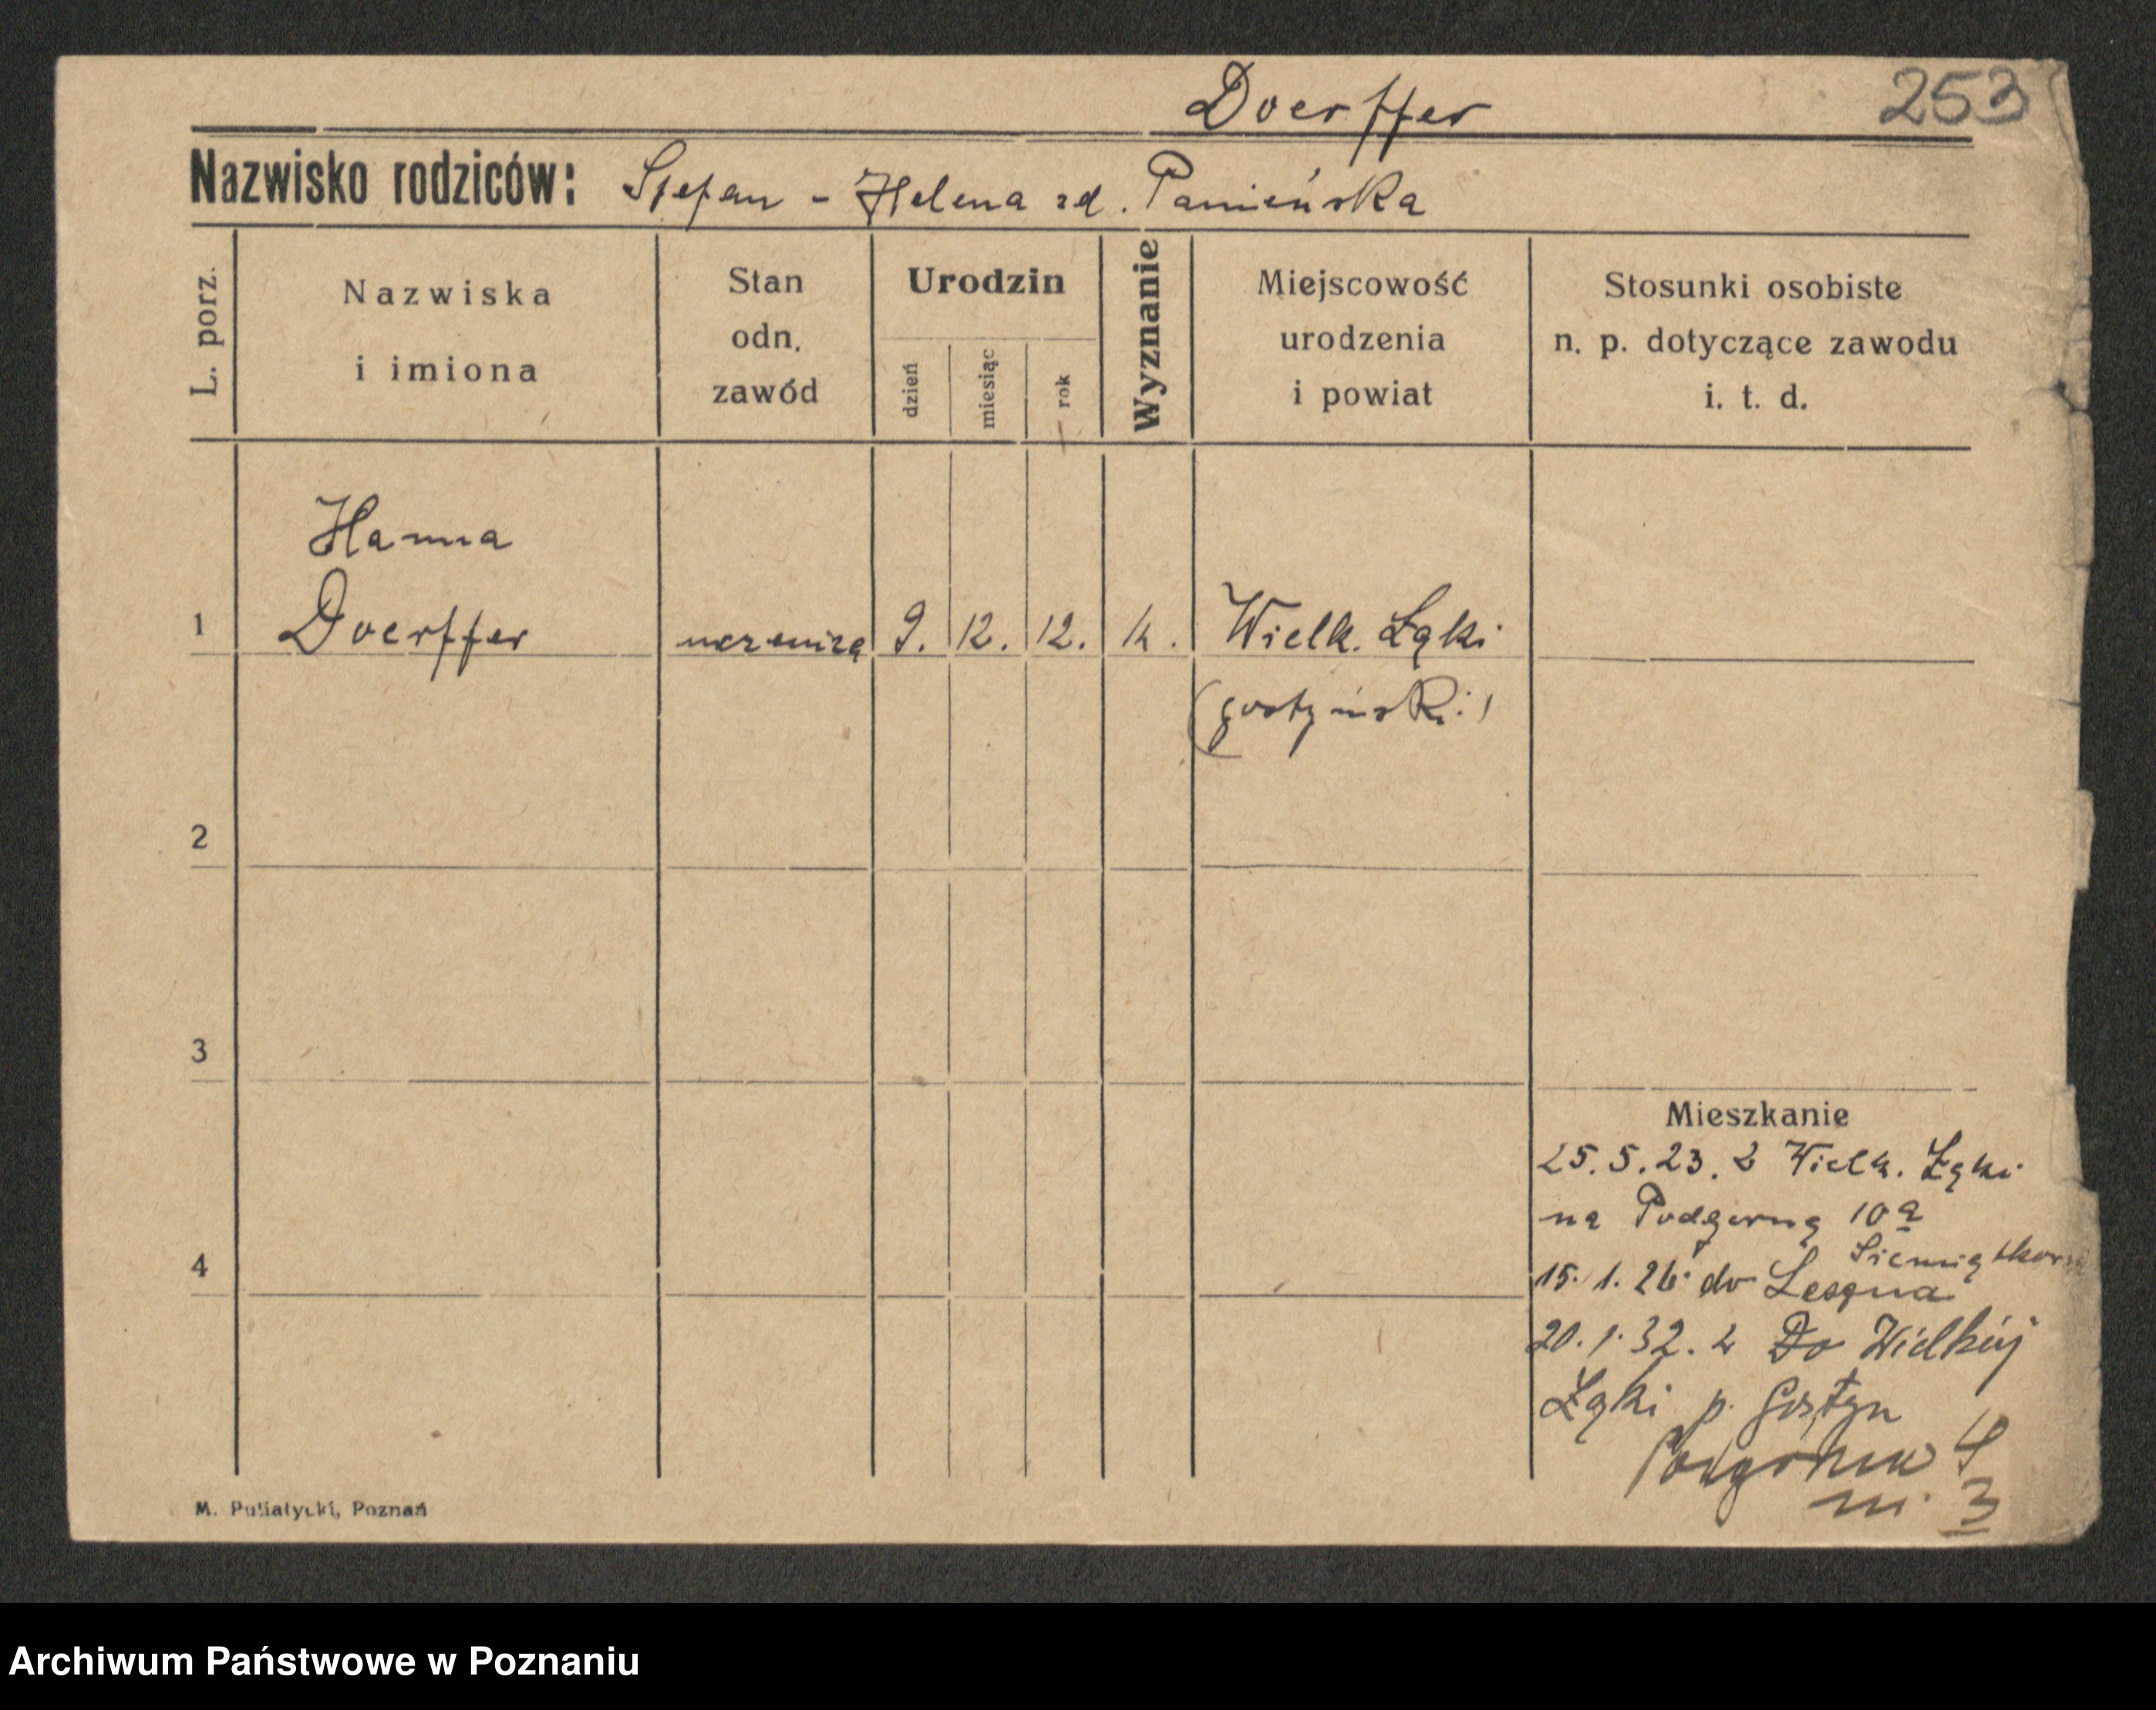 Doerffer
253
Nazwisko rodziców: Stefan - Helena zd. Pamieńska
L. porz.
Nazwiska
i imiona
Stan
odn.
zawód
Urodzin
dzień
miesiąc
rok
Wyznanie
Miejscowość
urodzenia
i powiat
Stosunki osobiste
n. p. dotyczące zawodu
i. t. d.
Hanna
1 Doerffer uczenica 9. 12. 12. k. Wielk. Łąki
(gostyński)
2
3
Mieszkanie
25. 5. 23. z Wielk. Łąki
na Podgórną 10a
4
15. 1. 26. do Leszna
20. 1. 32. z Do Wielkiej
Łąki p. Gostyn
m. 3
M. Putiatycki, Poznań
Archiwum Państwowe w Poznaniu